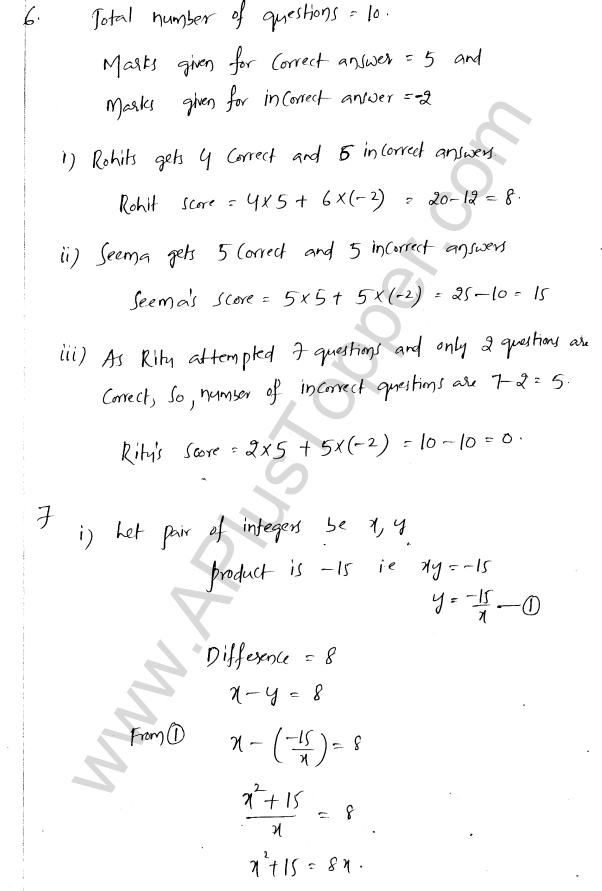 6. Total number of questions = 10.
Marks given for correct answer = 5 and
Marks given for incorrect answer = -2
i) Rohits gets 4 correct and 5 incorrect answers
Rohit score = 4×5 + 6×(-2) = 20-12 = 8.
ii) Seema gets 5 correct and 5 incorrect answers
Seema's score = 5×5 + 5×(-2) = 25-10 = 15
iii) As Ritu attempted 7 questions and only 2 questions are
correct, so, number of incorrect questions are 7-2 = 5.
Ritu's score = 2×5 + 5×(-2) = 10-10 = 0.
7 i) Let pair of integers be x, y
product is -15 i e xy = -15
y = -15/x — ①
Difference = 8
x - y = 8
From ① x - (-15/x) = 8
x²+15/x = 8
x²+15 = 8x.
www.APlusTopper.com